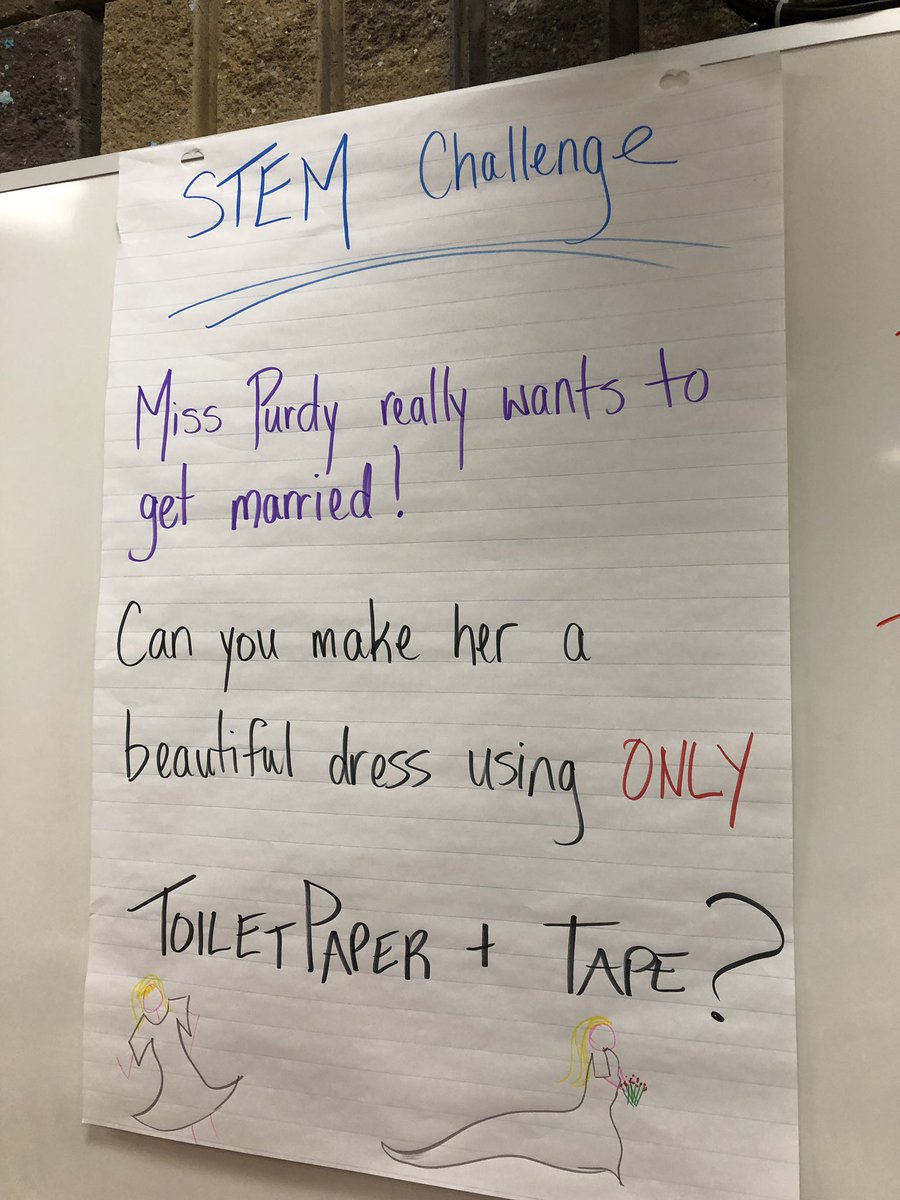 STEM Challenge
Miss Purdy really wants to
get married!
Can you make her a
beautiful dress using ONLY
TOILET PAPER + TAPE?